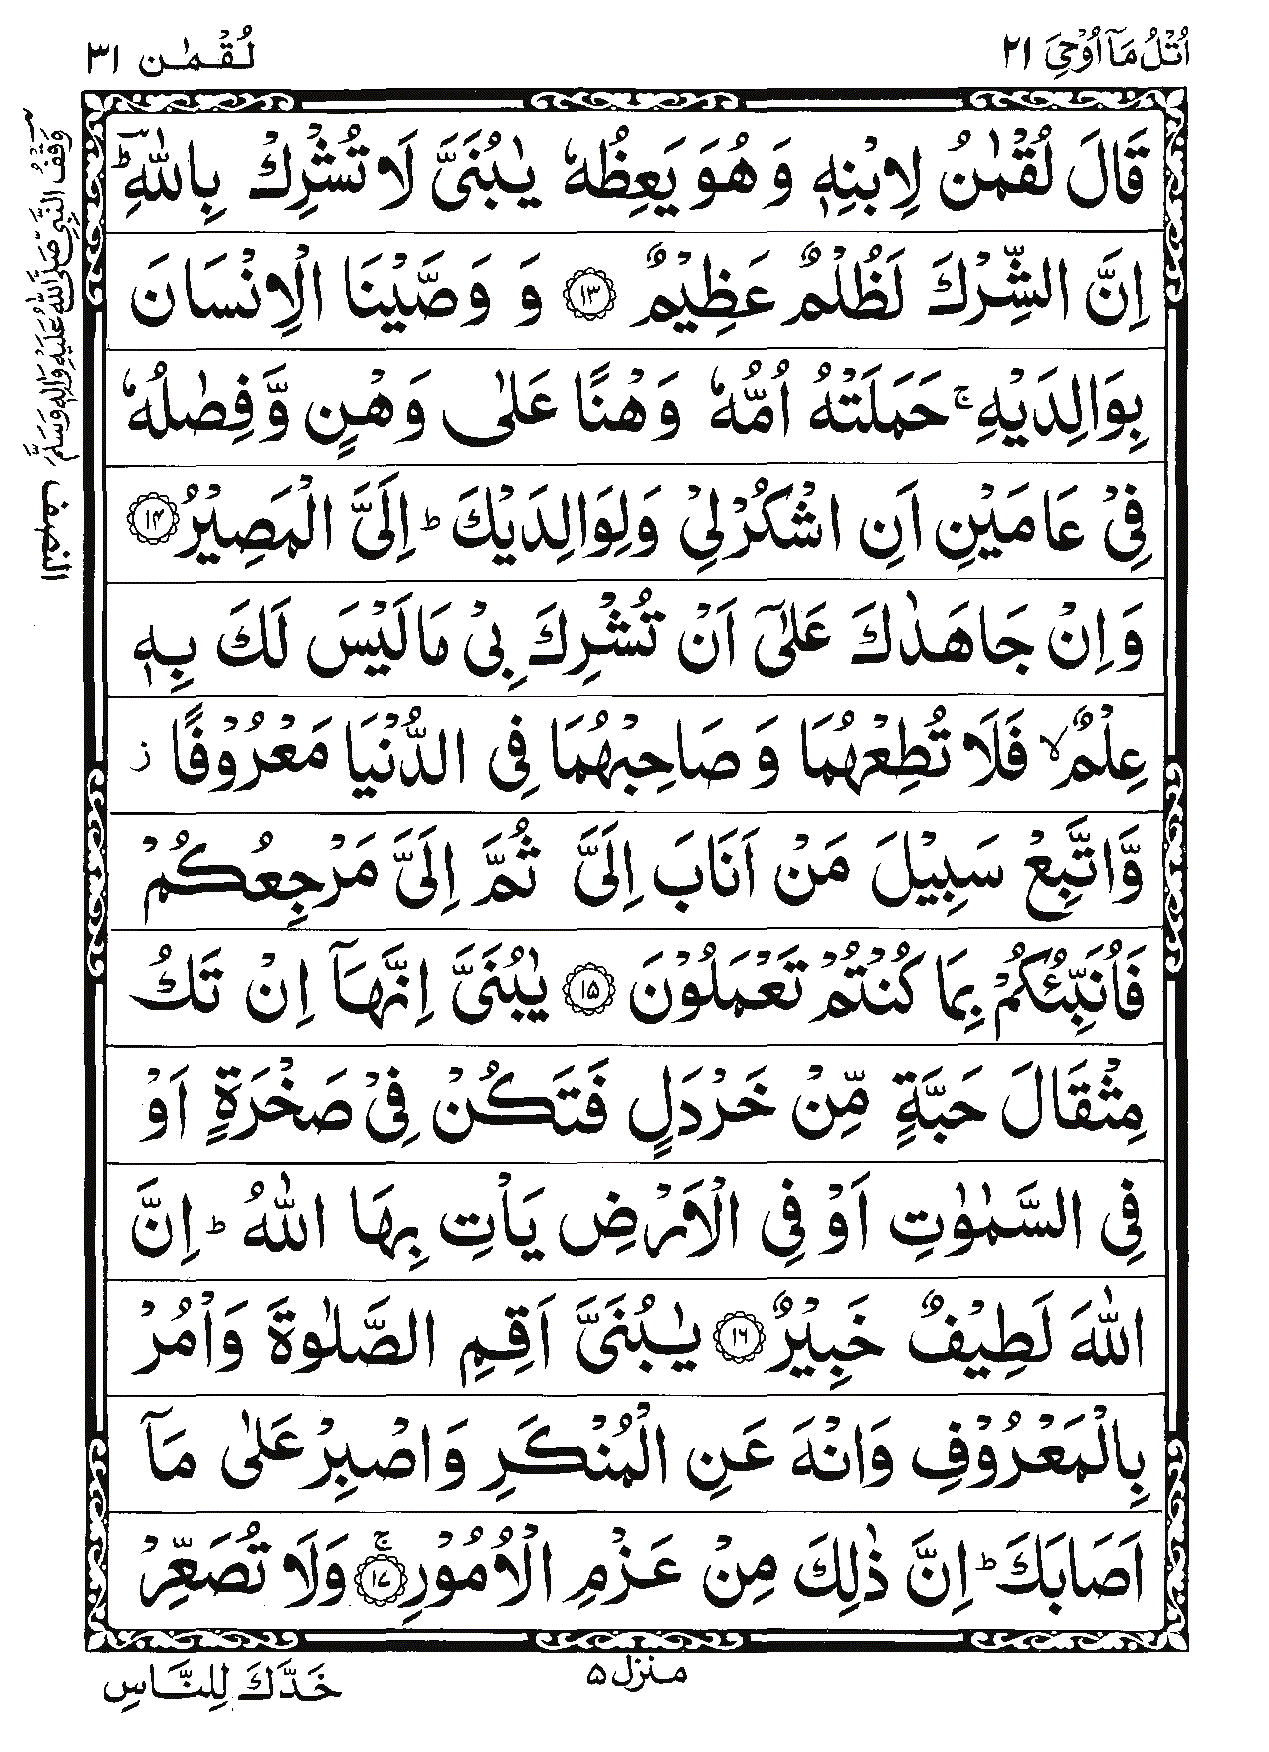 اُتْلُ مَآ اُوْحِیَ ٢١
لُقْمٰن ٣١
قَالَ لُقْمٰنُ لِابْنِهٖ وَ هُوَ یَعِظُهٗ یٰبُنَیَّ لَا تُشْرِكْ بِاللّٰهِ ؕ
اِنَّ الشِّرْكَ لَظُلْمٌ عَظِیْمٌ ﴿١٣﴾ وَ وَصَّیْنَا الْاِنْسَانَ
بِوَالِدَیْهِ ۚ حَمَلَتْهُ اُمُّهٗ وَهْنًا عَلٰی وَهْنٍ وَّ فِصٰلُهٗ
فِیْ عَامَیْنِ اَنِ اشْكُرْ لِیْ وَلِوَالِدَیْكَ ؕ اِلَیَّ الْمَصِیْرُ ﴿١۴﴾
وَاِنْ جَاهَدٰكَ عَلٰۤی اَنْ تُشْرِكَ بِیْ مَا لَیْسَ لَكَ بِهٖ
عِلْمٌ ۙ فَلَا تُطِعْهُمَا وَ صَاحِبْهُمَا فِی الدُّنْیَا مَعْرُوْفًا ز
وَّاتَّبِعْ سَبِیْلَ مَنْ اَنَابَ اِلَیَّ ثُمَّ اِلَیَّ مَرْجِعُكُمْ
فَاُنَبِّئُكُمْ بِمَا كُنْتُمْ تَعْمَلُوْنَ ﴿١۵﴾ یٰبُنَیَّ اِنَّهَاۤ اِنْ تَكُ
مِثْقَالَ حَبَّةٍ مِّنْ خَرْدَلٍ فَتَكُنْ فِیْ صَخْرَةٍ اَوْ
فِی السَّمٰوٰتِ اَوْ فِی الْاَرْضِ یَاْتِ بِهَا اللّٰهُ ؕ اِنَّ
اللّٰهَ لَطِیْفٌ خَبِیْرٌ ﴿١۶﴾ یٰبُنَیَّ اَقِمِ الصَّلٰوةَ وَاْمُرْ
بِالْمَعْرُوْفِ وَانْهَ عَنِ الْمُنْكَرِ وَاصْبِرْ عَلٰی مَاۤ
اَصَابَكَ ؕ اِنَّ ذٰلِكَ مِنْ عَزْمِ الْاُمُوْرِ ۚ ﴿١٧﴾ وَلَا تُصَعِّرْ
وَقْفُ النَّبِیِّ صَلَّی اللّٰهُ عَلَیْهِ وَاٰلِهٖ وَسَلَّمَ
النصف
منزل ۵
خَدَّكَ لِلنَّاسِ